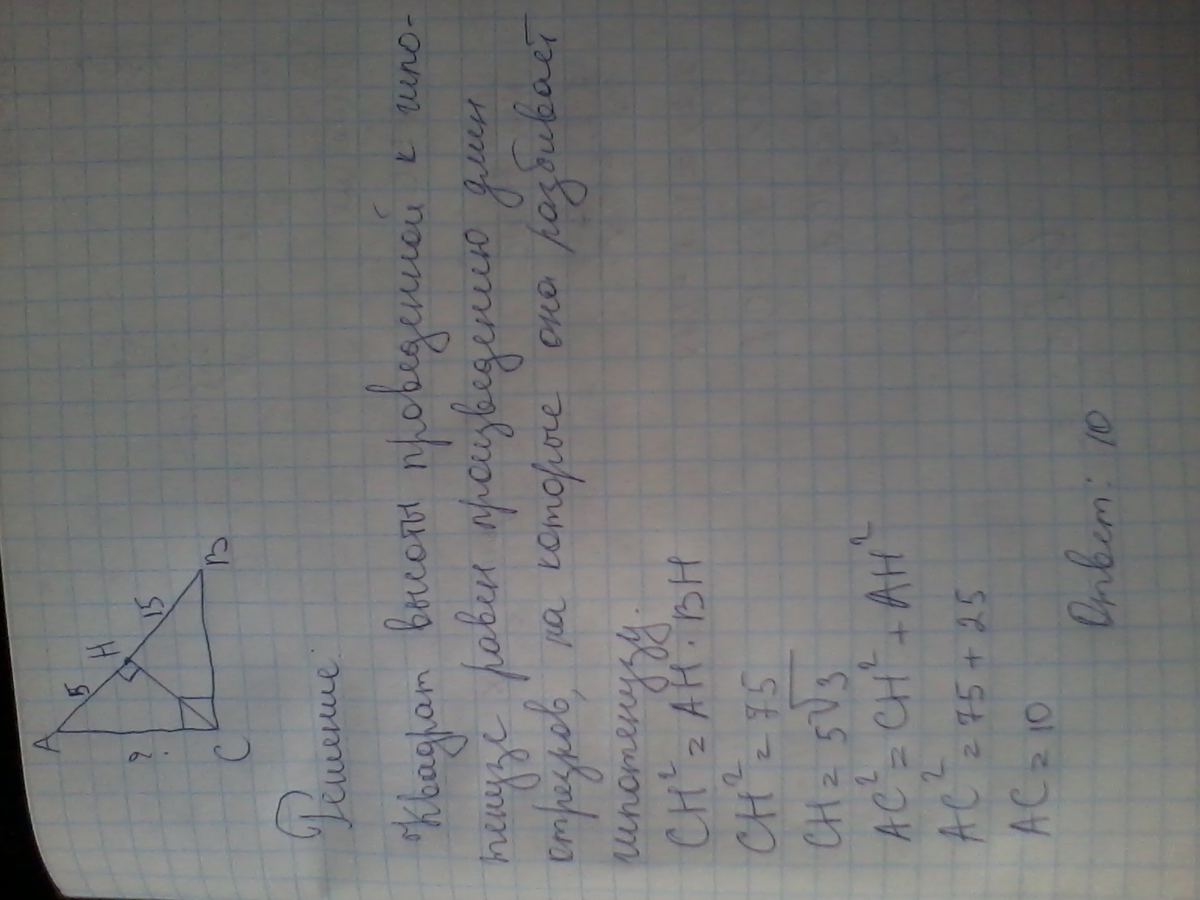 A
5
H
15
?
C
B
Решение:
Квадрат высоты проведенной к гипо-
тенузе равен произведению длин
отрезров, на которые она разбивает
гипотенузу.
CH² = AH · BH
CH² = 75
CH = 5√3
AC² = CH² + AH²
AC² = 75 + 25
AC = 10
Ответ: 10